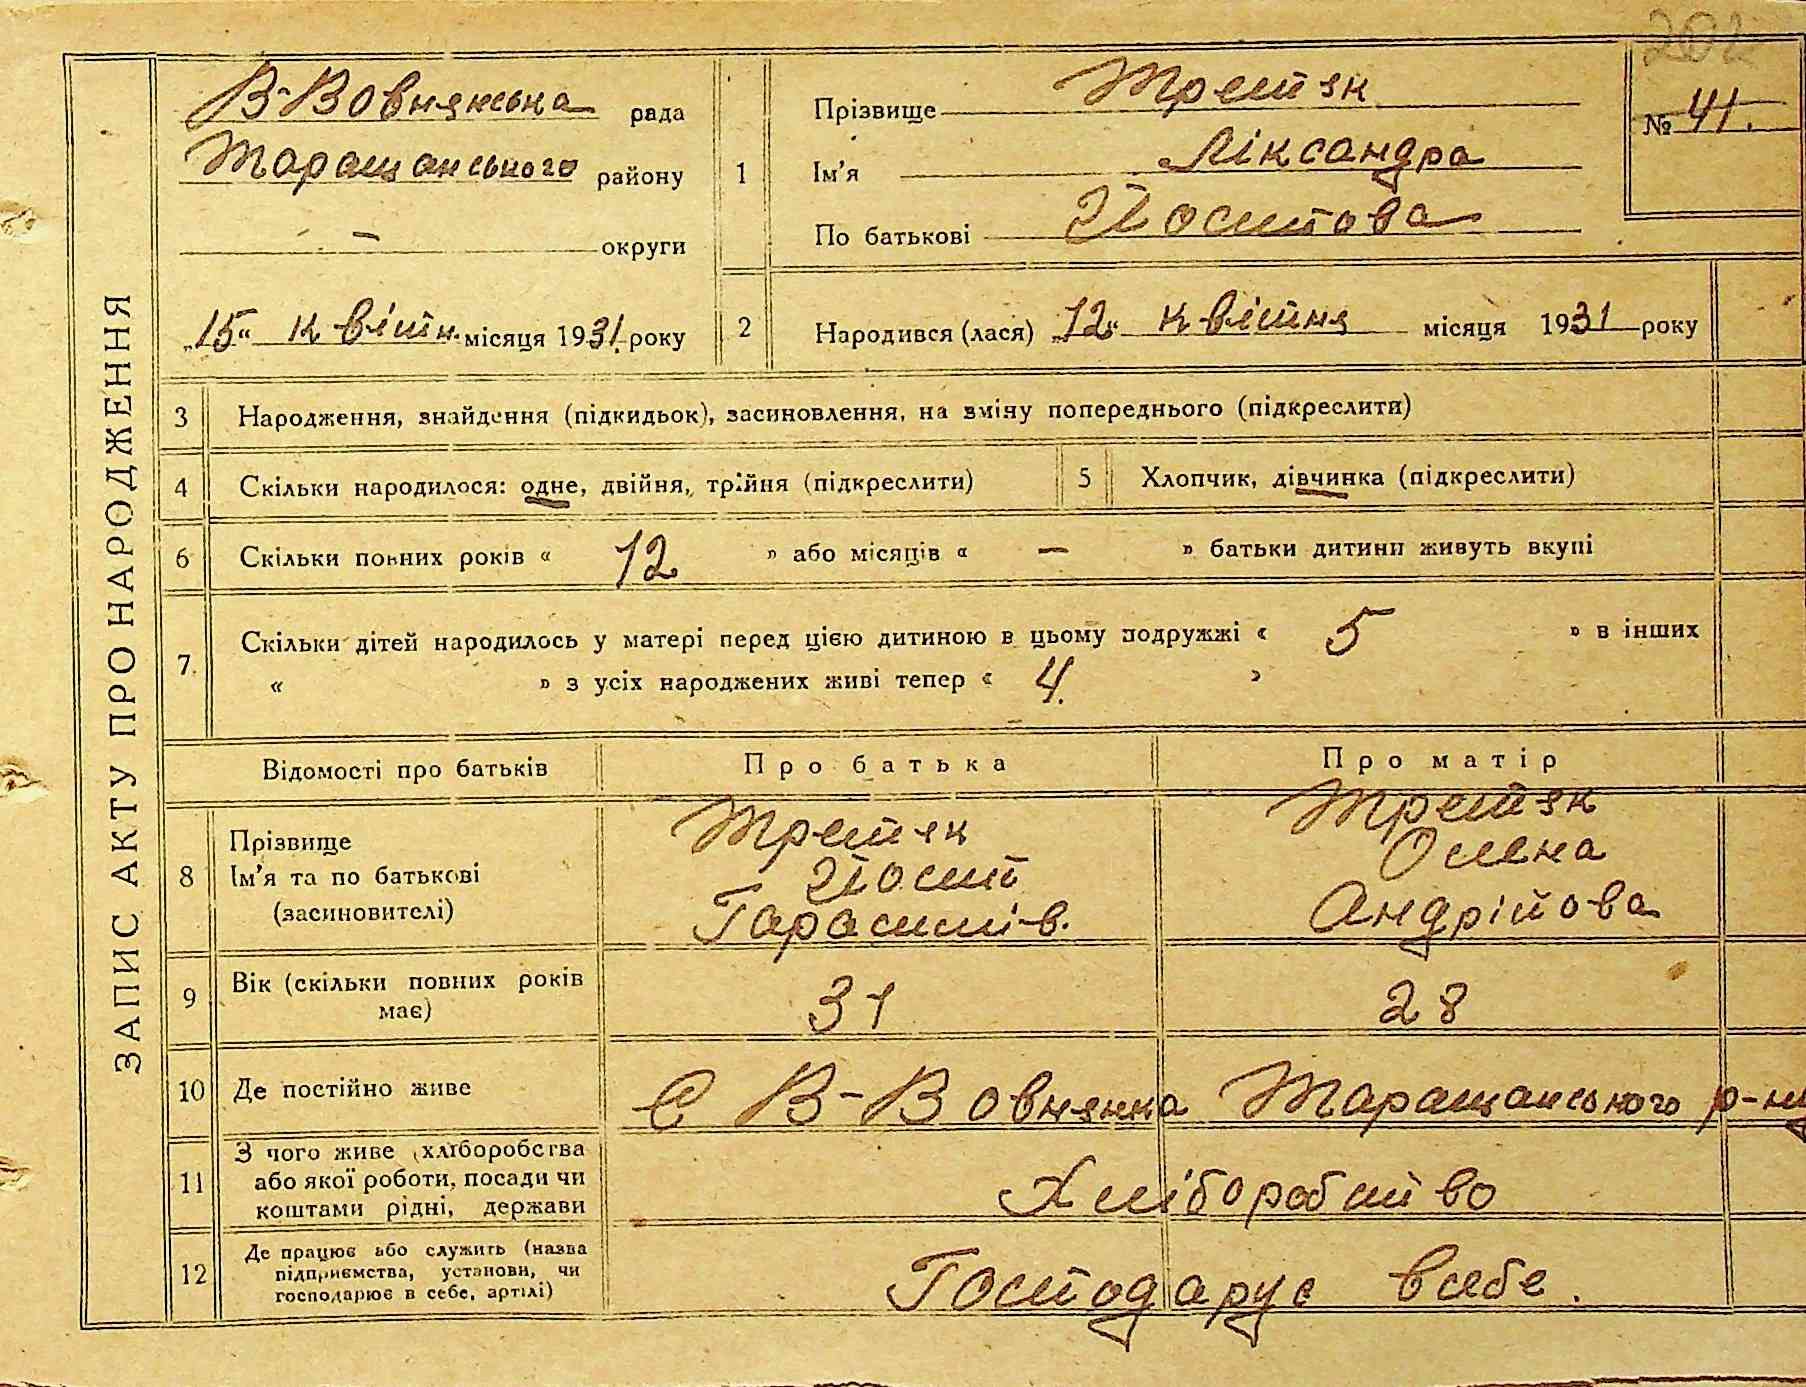 202
ЗАПИС АКТУ ПРО НАРОДЖЕННЯ
В-Вовнянська рада
Таращанського району
— округи
„15“ квітн. місяця 1931. року
1
Прізвище Третяк
Ім’я Ліксандра
По батькові Йосипова
№ 41.
2 Народився (лася) „12“ квітня місяця 1931 року
3 Народження, знайдення (підкидьок), засиновлення, на зміну попереднього (підкреслити)
4 Скільки народилося: одне, двійня, трійня (підкреслити) 5 Хлопчик, дівчинка (підкреслити)
6 Скільки повних років « 12 » або місяців « — » батьки дитини живуть вкупі
7. Скільки дітей народилось у матері перед цією дитиною в цьому подружжі « 5 » в інших
« » з усіх народжених живі тепер « 4. »
Відомості про батьків Про батька Про матір
8 Прізвище Третяк Третяк
Ім’я та по батькові Йосип Олена
(засиновителі) Гарасимів. Андрійова
9 Вік (скільки повних років має) 31 28
10 Де постійно живе С В-Вовнянка Таращанського р-ну
11 З чого живе (хліборобства
або якої роботи, посади чи Хліборобство
коштами рідні, держави
12 Де працює або служить (назва
підприємства, установи, чи Господарує в себе.
господарює в себе, артілі)